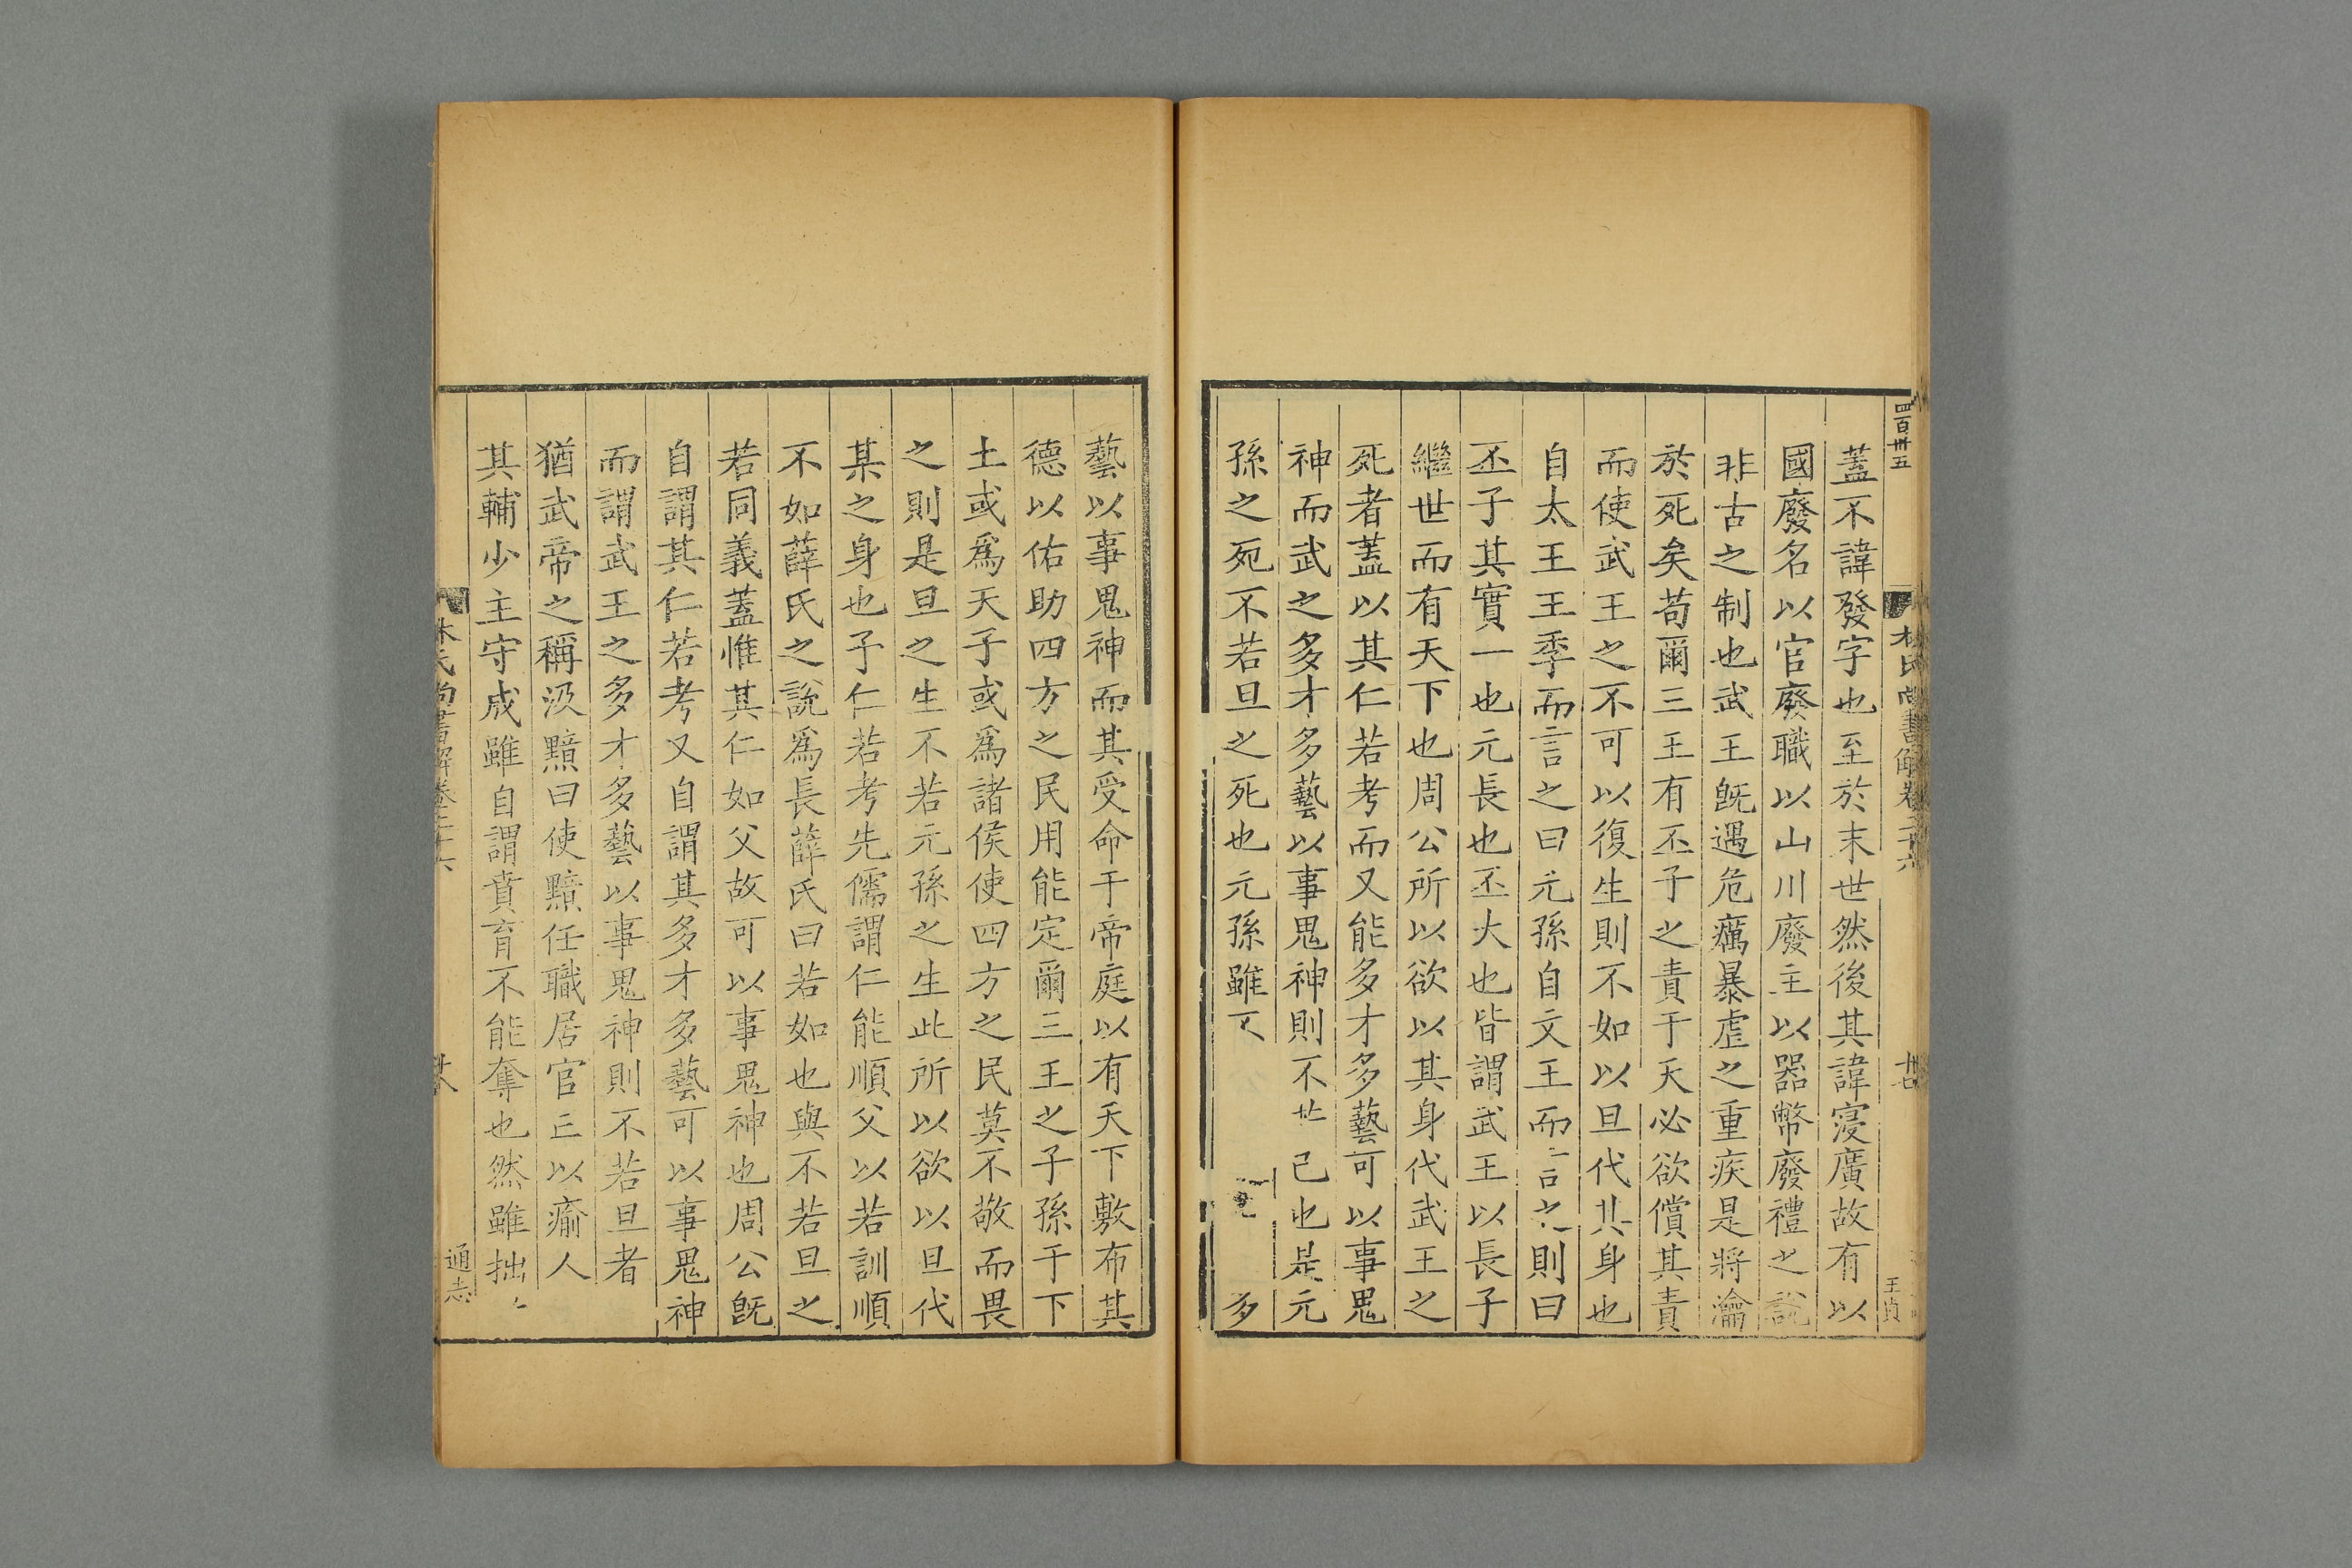 四百卅五
林氏尚書解卷二十六
卅七
王貞
蓋不諱發字也至於末世然後其諱寖廣故有以
國廢名以官廢職以山川廢主以器幣廢禮之說
非古之制也武王旣遇危癘暴虐之重疾是將瀹
於死矣苟爾三王有丕子之責于天必欲償其責
而使武王之不可以復生則不如以旦代其身也
自太王王季而言之曰元孫自文王而言之則曰
丕子其實一也元長也丕大也皆謂武王以長子
繼世而有天下也周公所以欲以其身代武王之
死者蓋以其仁若考而又能多才多藝可以事鬼
神而武之多才多藝以事鬼神則不 己也是元
孫之死不若旦之死也元孫雖不 多
藝以事鬼神而其受命于帝庭以有天下敷布其
德以佑助四方之民用能定爾三王之子孫于下
土或爲天子或爲諸侯使四方之民莫不敬而畏
之則是旦之生不若元孫之生此所以欲以旦代
某之身也予仁若考先儒謂仁能順父以若訓順
不如薛氏之說爲長薛氏曰若如也與不若旦之
若同義蓋惟其仁如父故可以事鬼神也周公旣
自謂其仁若考又自謂其多才多藝可以事鬼神
而謂武王之多才多藝以事鬼神則不若旦者
猶武帝之稱汲黯曰使黯任職居官亡以瘉人
其輔少主守成雖自謂賁育不能奪也然雖拙
林氏尚書解卷二十六
通志